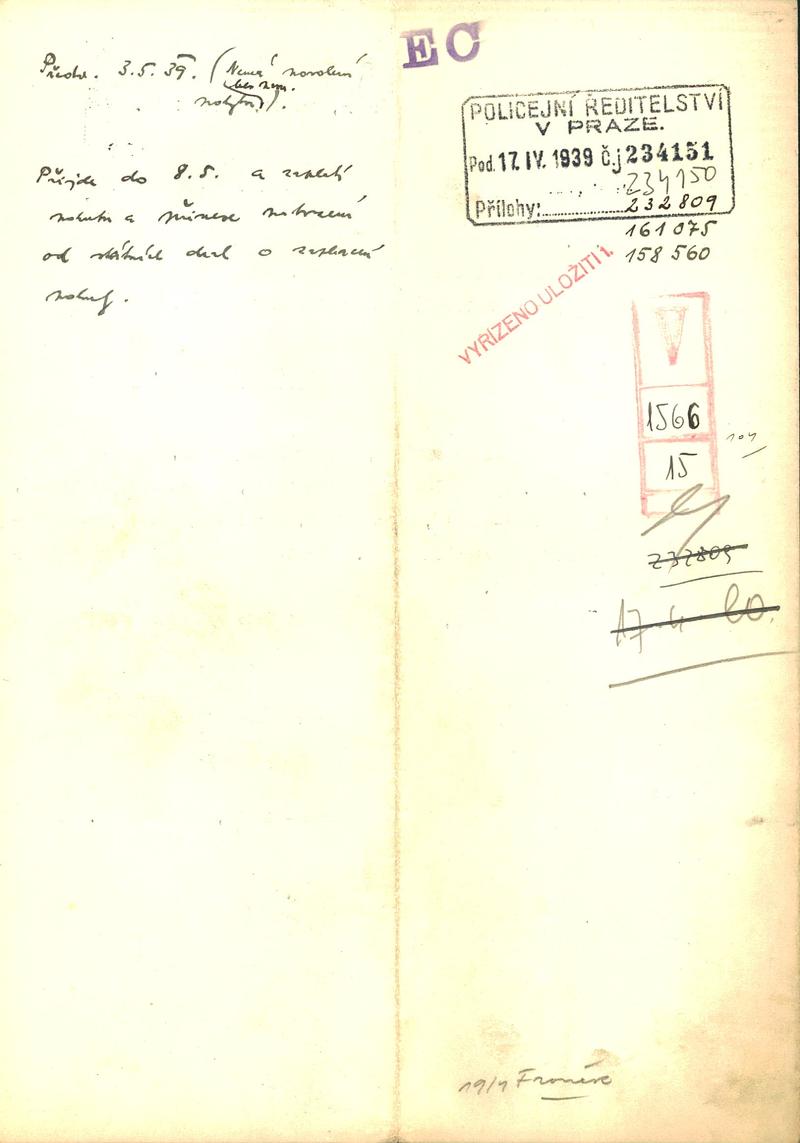 Předv. 3.5.39. (Nemá povolení
Přijde do 8.5. a zaplatí
pokutu a přinese potvrzení
od státních drah o zaplacení
pokuty.
EC
POLICEJNÍ ŘEDITELSTVÍ
V PRAZE.
Pod. 17. IV. 1939 č.j 234151
234150
Přílohy: 232809
161075
158560
VYŘÍZENO ULOŽITI
1566
15
232809
17-4